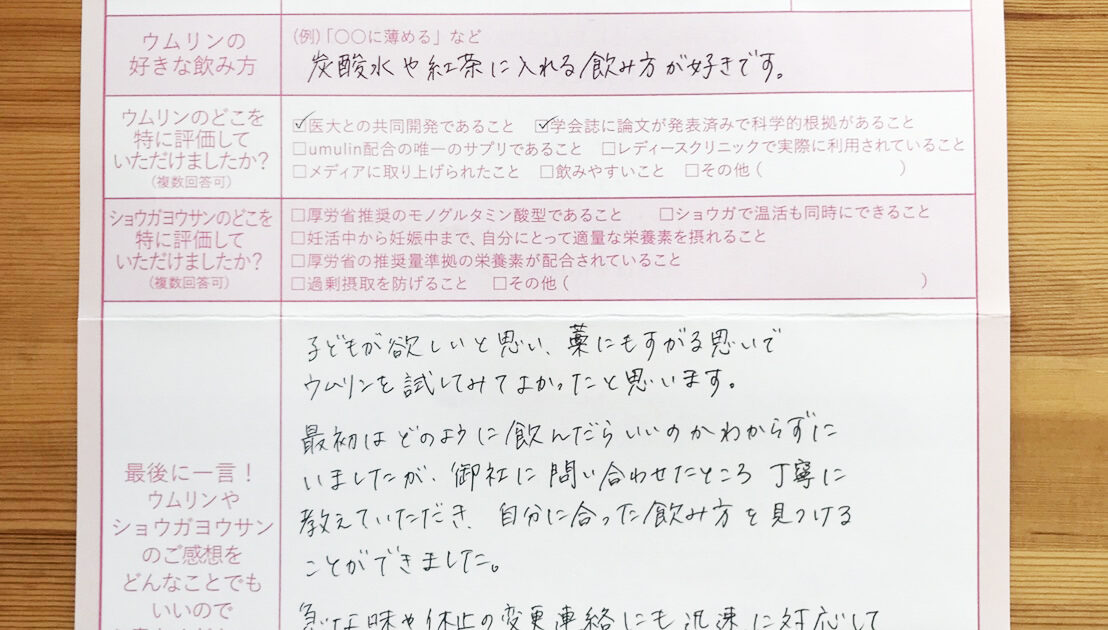 ウムリンの
好きな飲み方
(例)「○○に薄める」など
炭酸水や紅茶に入れる飲み方が好きです。
ウムリンのどこを
特に評価して
いただけましたか?
(複数回答可)
☑医大との共同開発であること ☑学会誌に論文が発表済みで科学的根拠があること
□umulin配合の唯一のサプリであること □レディースクリニックで実際に利用されていること
□メディアに取り上げられたこと □飲みやすいこと □その他( )
ショウガヨウサンのどこを
特に評価して
いただけましたか?
(複数回答可)
□厚労省推奨のモノグルタミン酸型であること □ショウガで温活も同時にできること
□妊活中から妊娠中まで、自分にとって適量な栄養素を摂れること
□厚労省の推奨量準拠の栄養素が配合されていること
□過剰摂取を防げること □その他( )
最後に一言!
ウムリンや
ショウガヨウサン
のご感想を
どんなことでも
いいので
子どもが欲しいと思い、藁にもすがる思いで
ウムリンを試してみてよかったと思います。
最初はどのように飲んだらいいのかわからずに
いましたが、御社に問い合わせたところ丁寧に
教えていただき、自分に合った飲み方を見つける
ことができました。
急な味や休止の変更連絡にも迅速に対応して